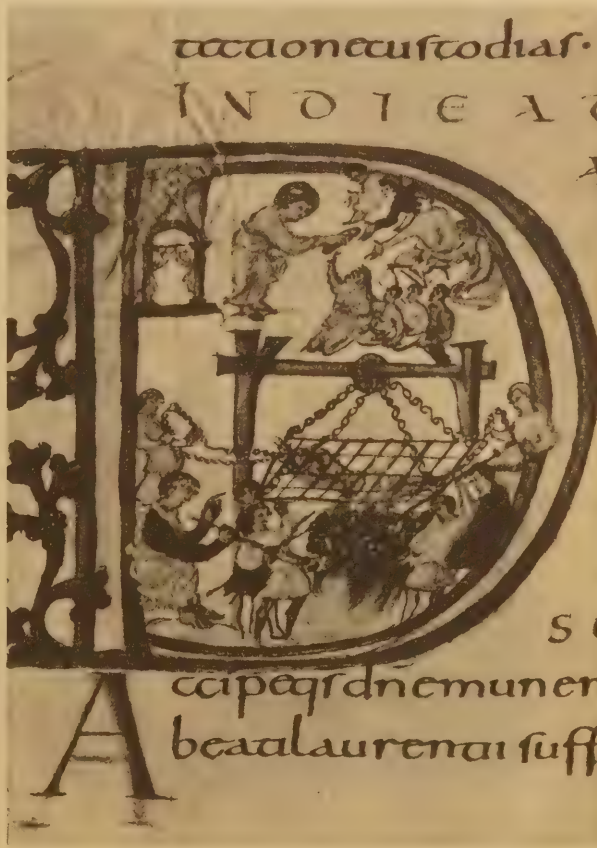 tectione custodias·
IN DIE A
D
S
Accipe qs dne muner
beati laurentii suff